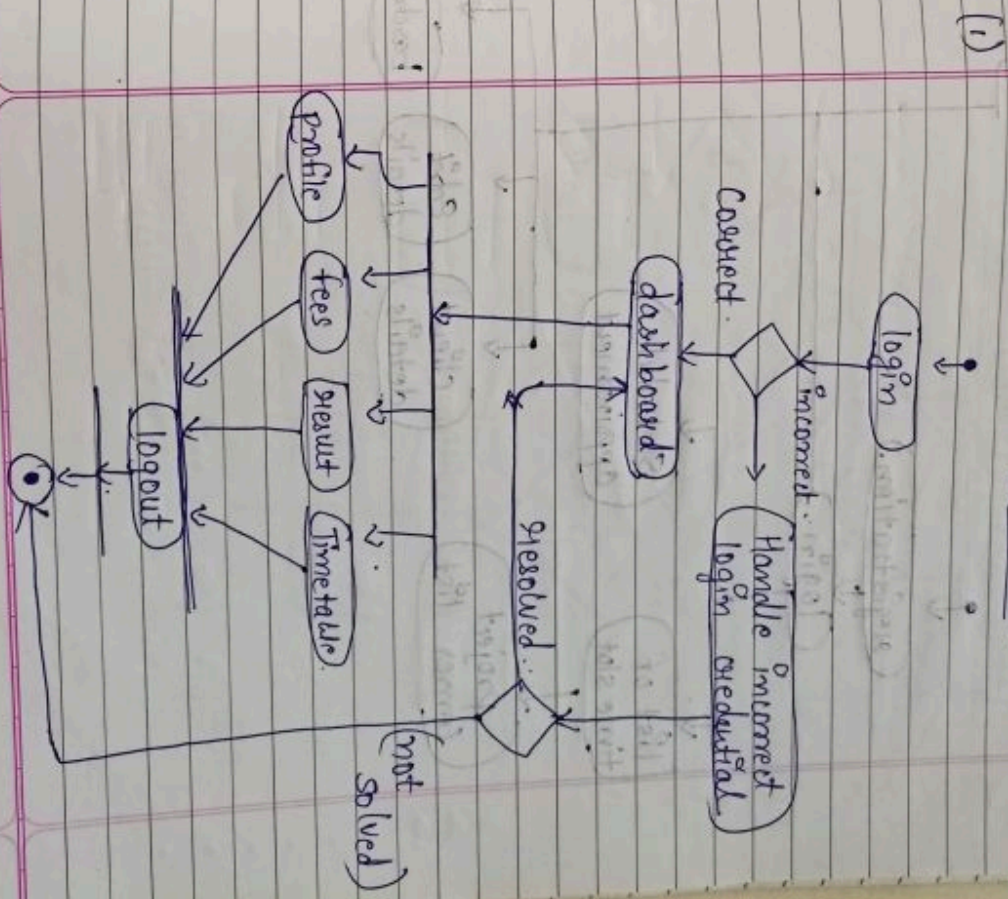 (1)
login
incorrect.
Correct.
Handle incorrect
login credential
dashboard
resolved..
(not
solved)
profile
fees
result
Timetable.
logout